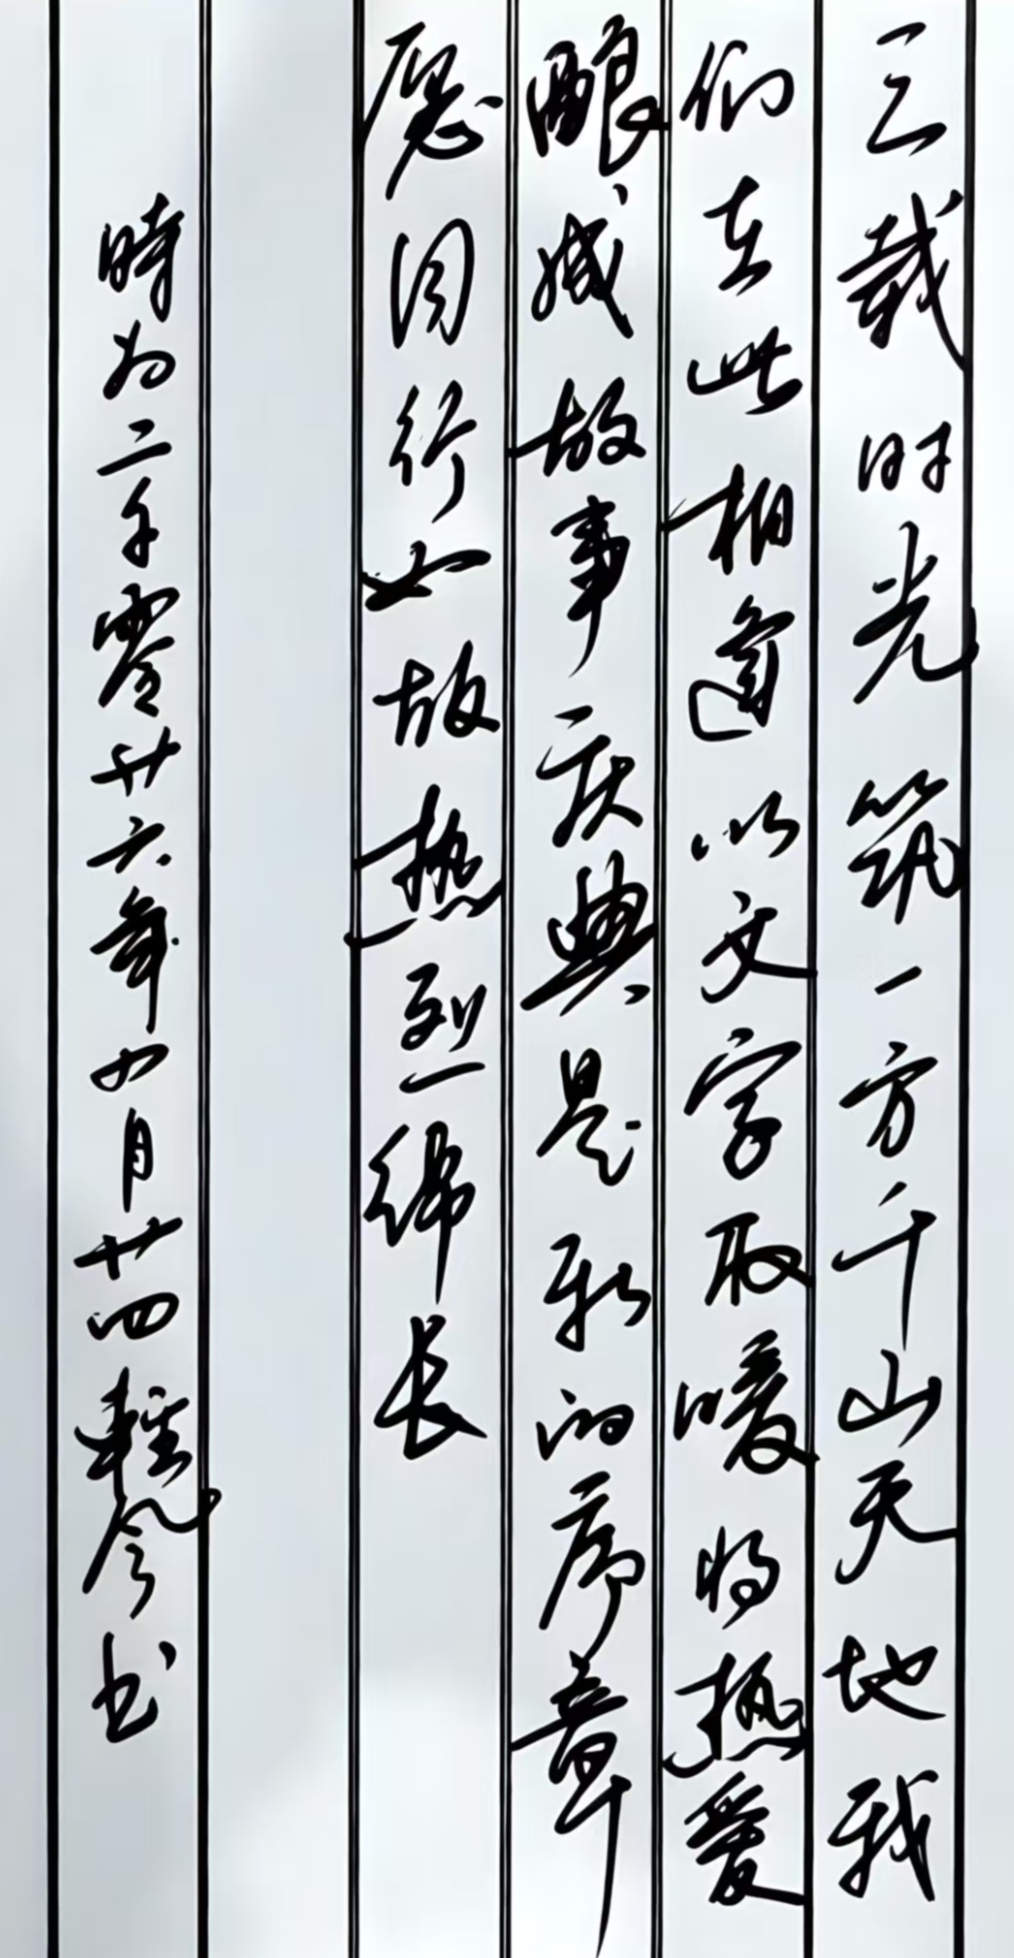 三载时光筑一方千山天地我
们在此相逢以文字取暖将热爱
酿成故事庆典是新的序章
愿同行如故热烈绵长
時为二千零廿六年四月廿四輕令书